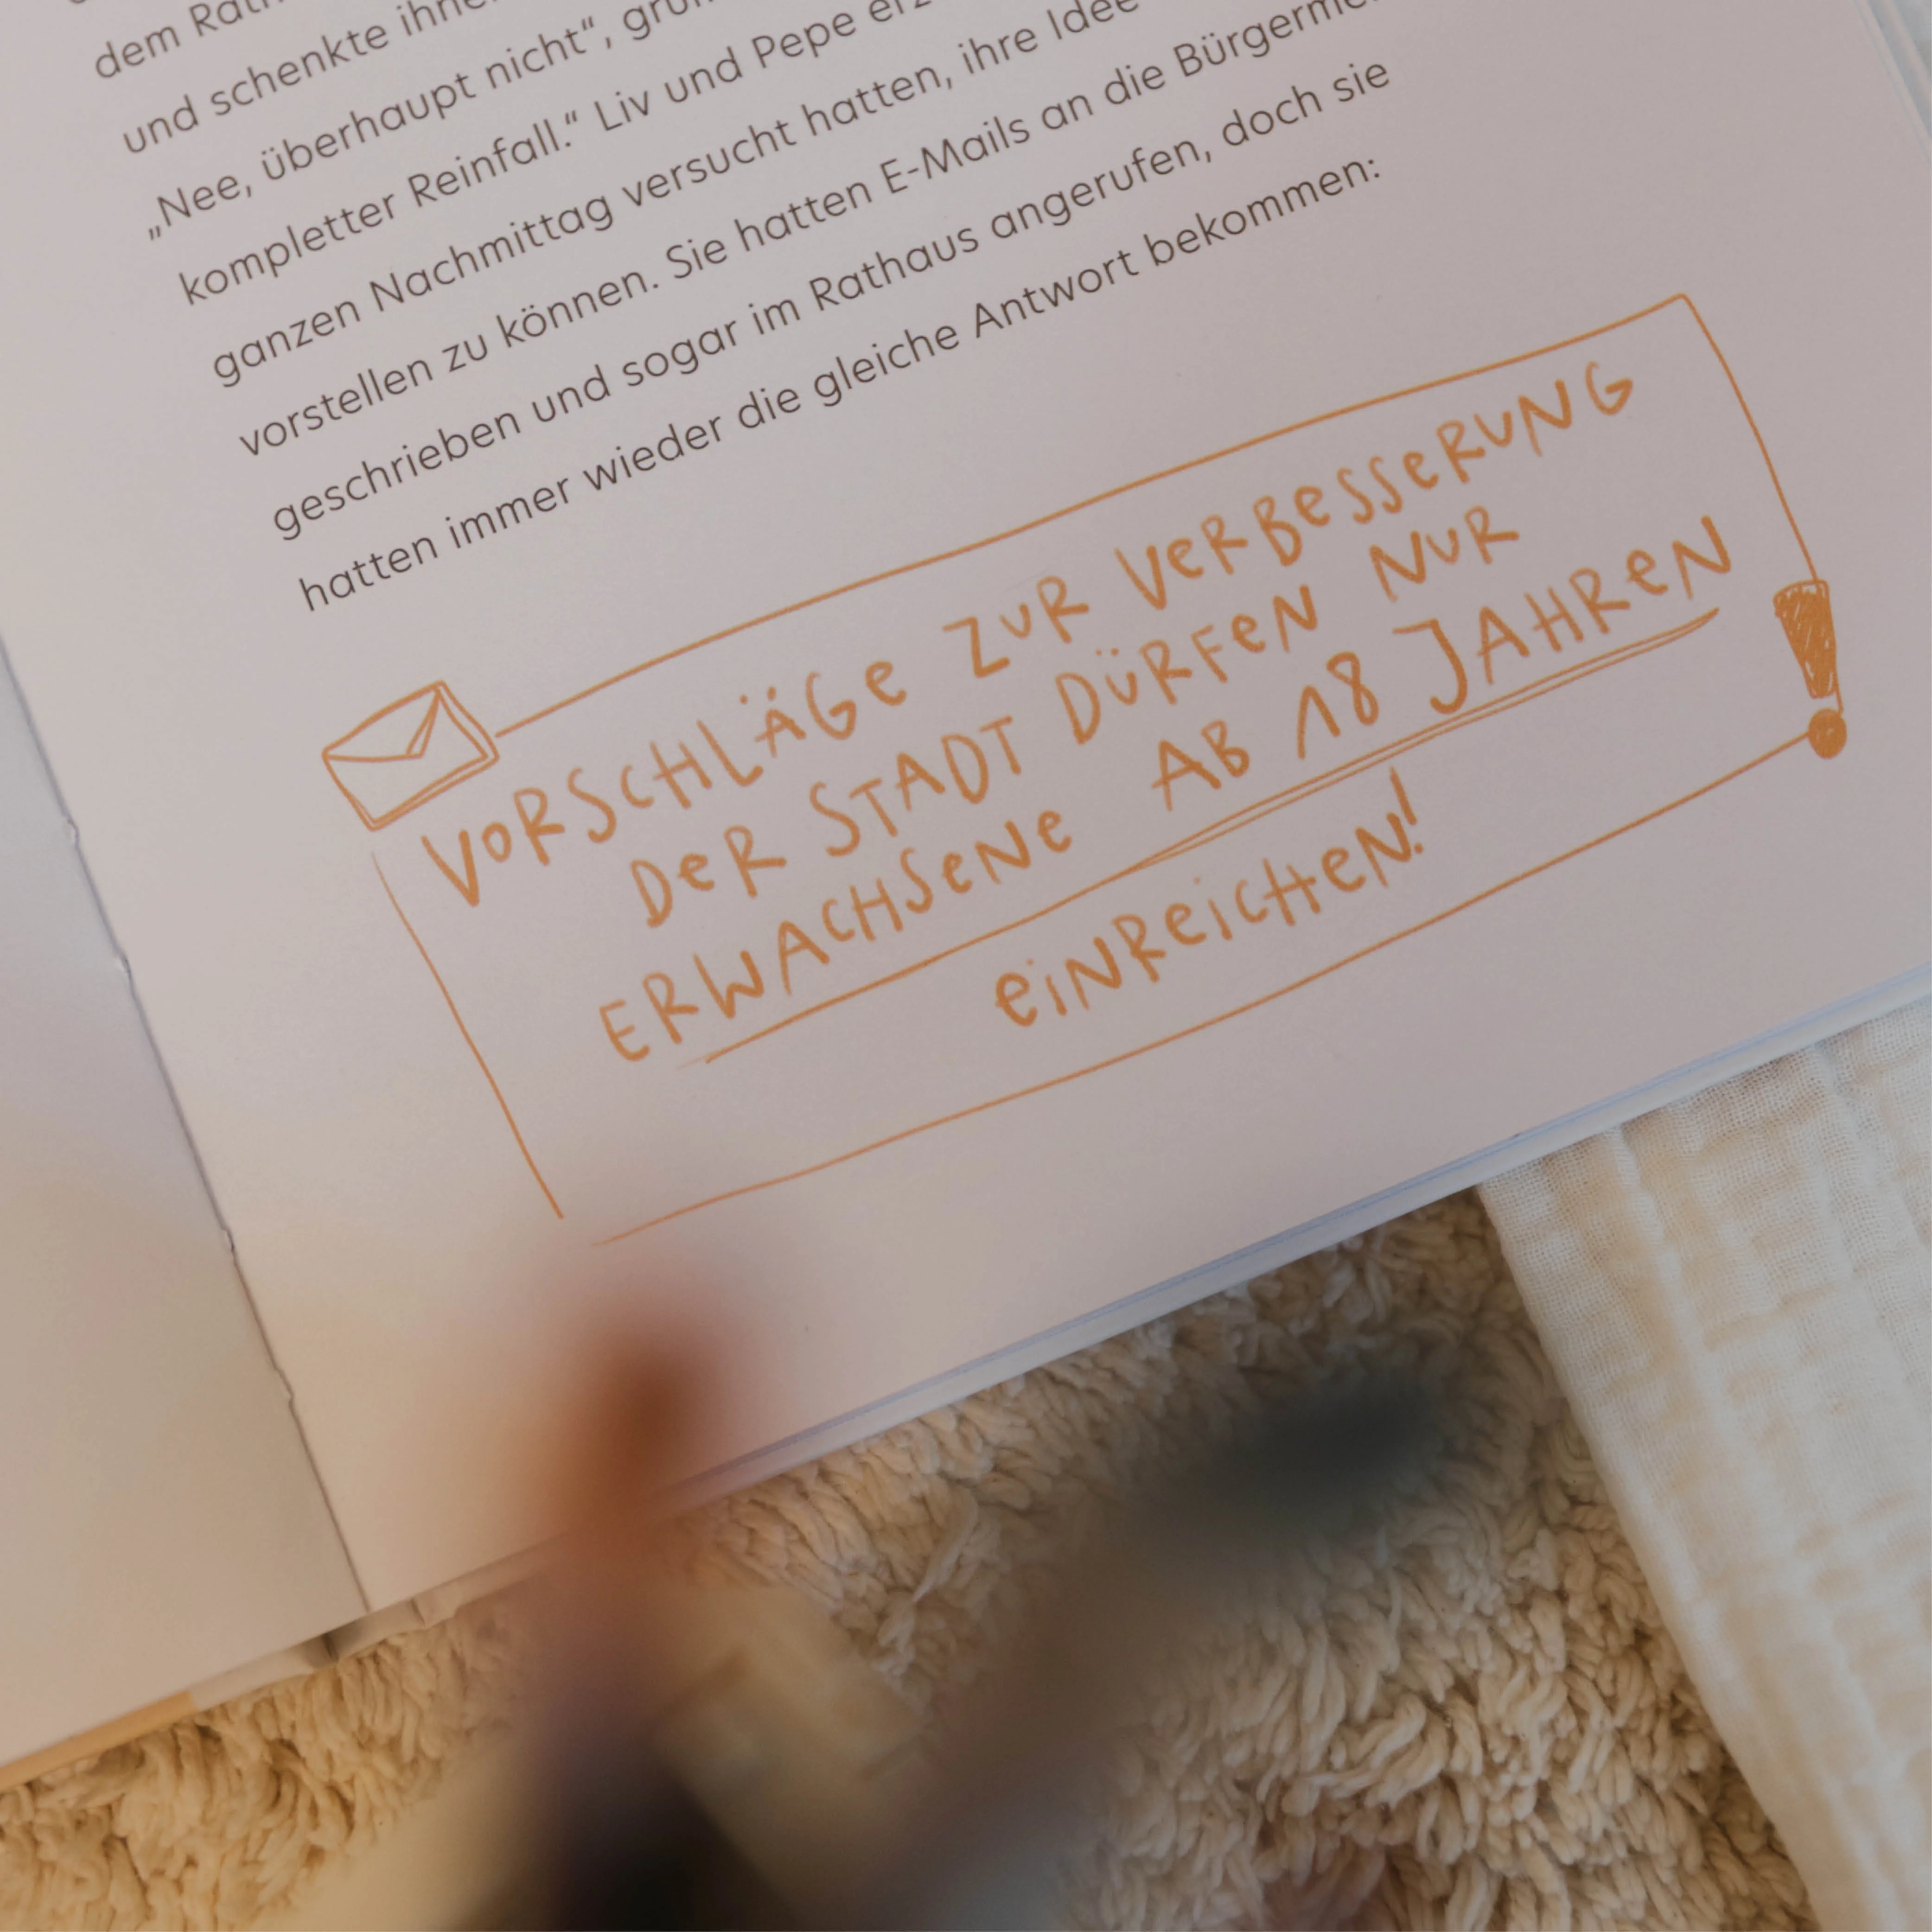 dem
und schenkte
„Nee, überhaupt nicht“,
kompletter Reinfall.“ Liv und Pepe
ganzen Nachmittag versucht hatten, ihre Idee
vorstellen zu können. Sie hatten E-Mails an die
geschrieben und sogar im Rathaus angerufen, doch sie
hatten immer wieder die gleiche Antwort bekommen:
VORSCHLÄGE ZUR VERBESSERUNG
DER STADT DÜRFEN NUR
ERWACHSENE AB 18 JAHREN
EINREICHEN!